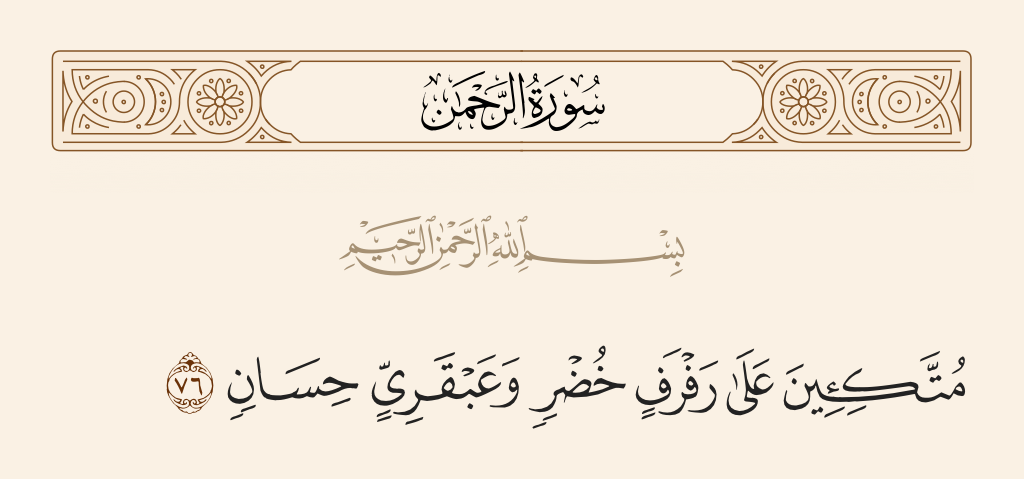 سُورَةُ الرَّحْمَٰن
بِسْمِ ٱللَّهِ ٱلرَّحْمَٰنِ ٱلرَّحِيمِ
مُتَّكِـِٔينَ عَلَىٰ رَفْرَفٍ خُضْرٍ وَعَبْقَرِىٍّ حِسَانٍ ٧٦